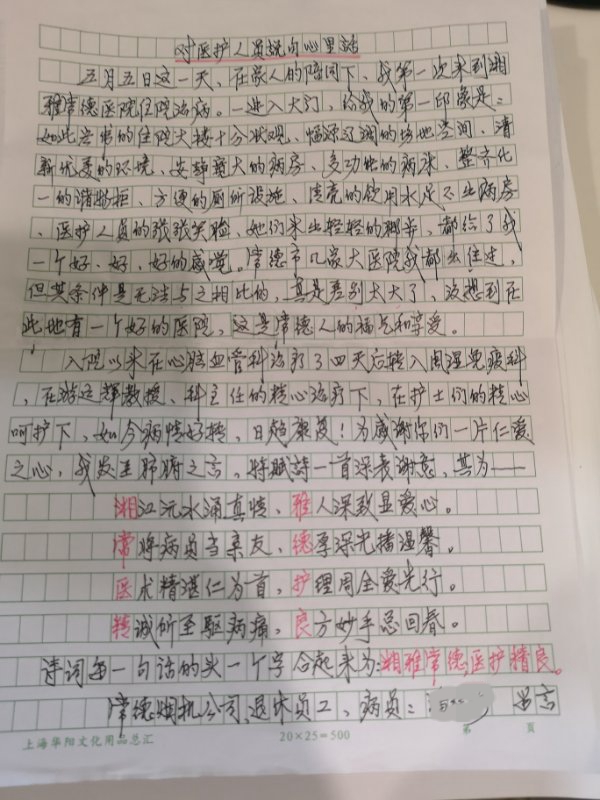 对医护人员说句心里话
五月五日这一天、在家人的陪同下、我第一次来到湘
雅常德医院住院治病。一进入大门，给我的第一印象是：
如此高的住院大楼十分状观、幅源辽阔的场地空间、清
新优美的环境、安静宽大的病房、多功能的病床、整齐化
一的储物柜、方便的厕所设施、洁亮的饮用水足不出病房
、医护人员的张张笑脸、她们来出轻轻的脚步、都给了我
一个好、好、好的感觉。常德市几家大医院我都去住过，
但其条件是无法与之相比的，真是差别太大了，没想到在
此地有一个好的医院，这是常德人的福气和享受。
入院以来在心脑血管科治疗了四天后转入风湿免疫科
、在游运辉教授、科主任的精心治疗下、在护士们的精心
呵护下，如今病情好转，日趋康复！为感谢你们一片仁爱
之心，我发至肺腑之言，特赋诗一首深表谢意，其为——
湘江沅水涌真情、雅人深致显爱心。
常将病员当亲友、德厚深光播温馨。
医术精湛仁为首，护理周全爱先行。
精诚所至驱病痛，良方妙手总回春。
诗词每一句话的头一个字合起来为：湘雅常德，医护精良。
常德烟机公司退休员工、病员： 留言
上海华阳文化用品总汇 20×25=500 第 页